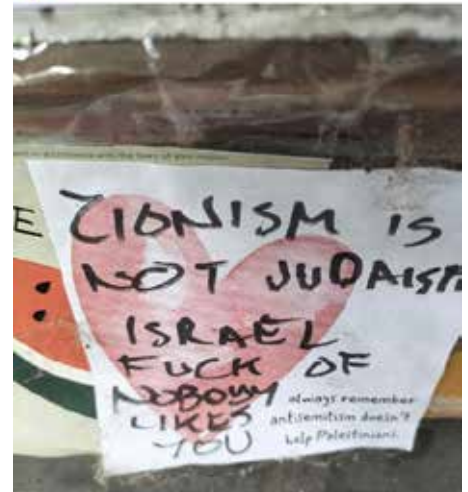 E ZIONISM IS
NOT JUDAISM
ISRAEL
FUCK OF
NOBODY
LIKES
YOU
always remember
antisemitism doesn't
help Palestinians.